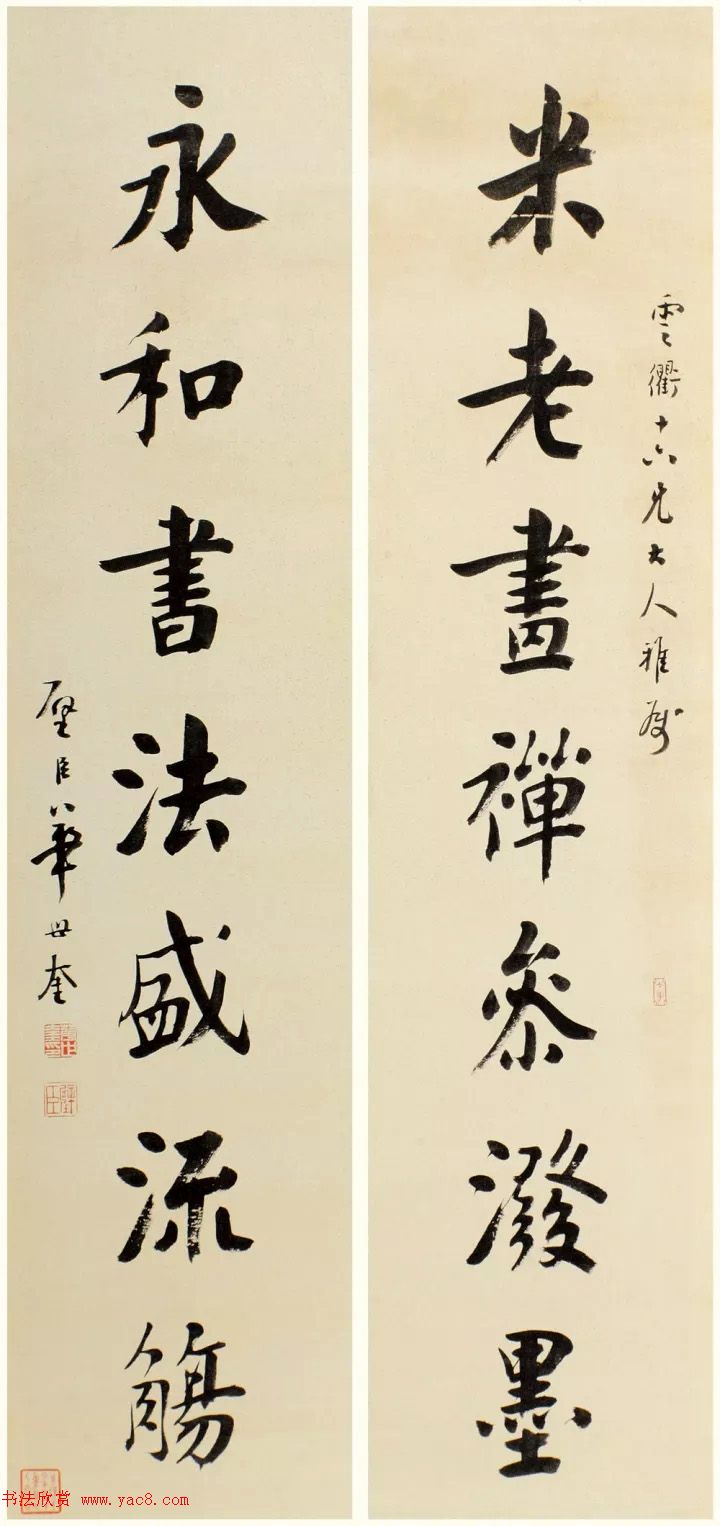 雲衢十六兄大人雅属
米老畫禪參潑墨
永和書法盛流觴
壁臣華世奎
书法欣赏 www.yac8.com